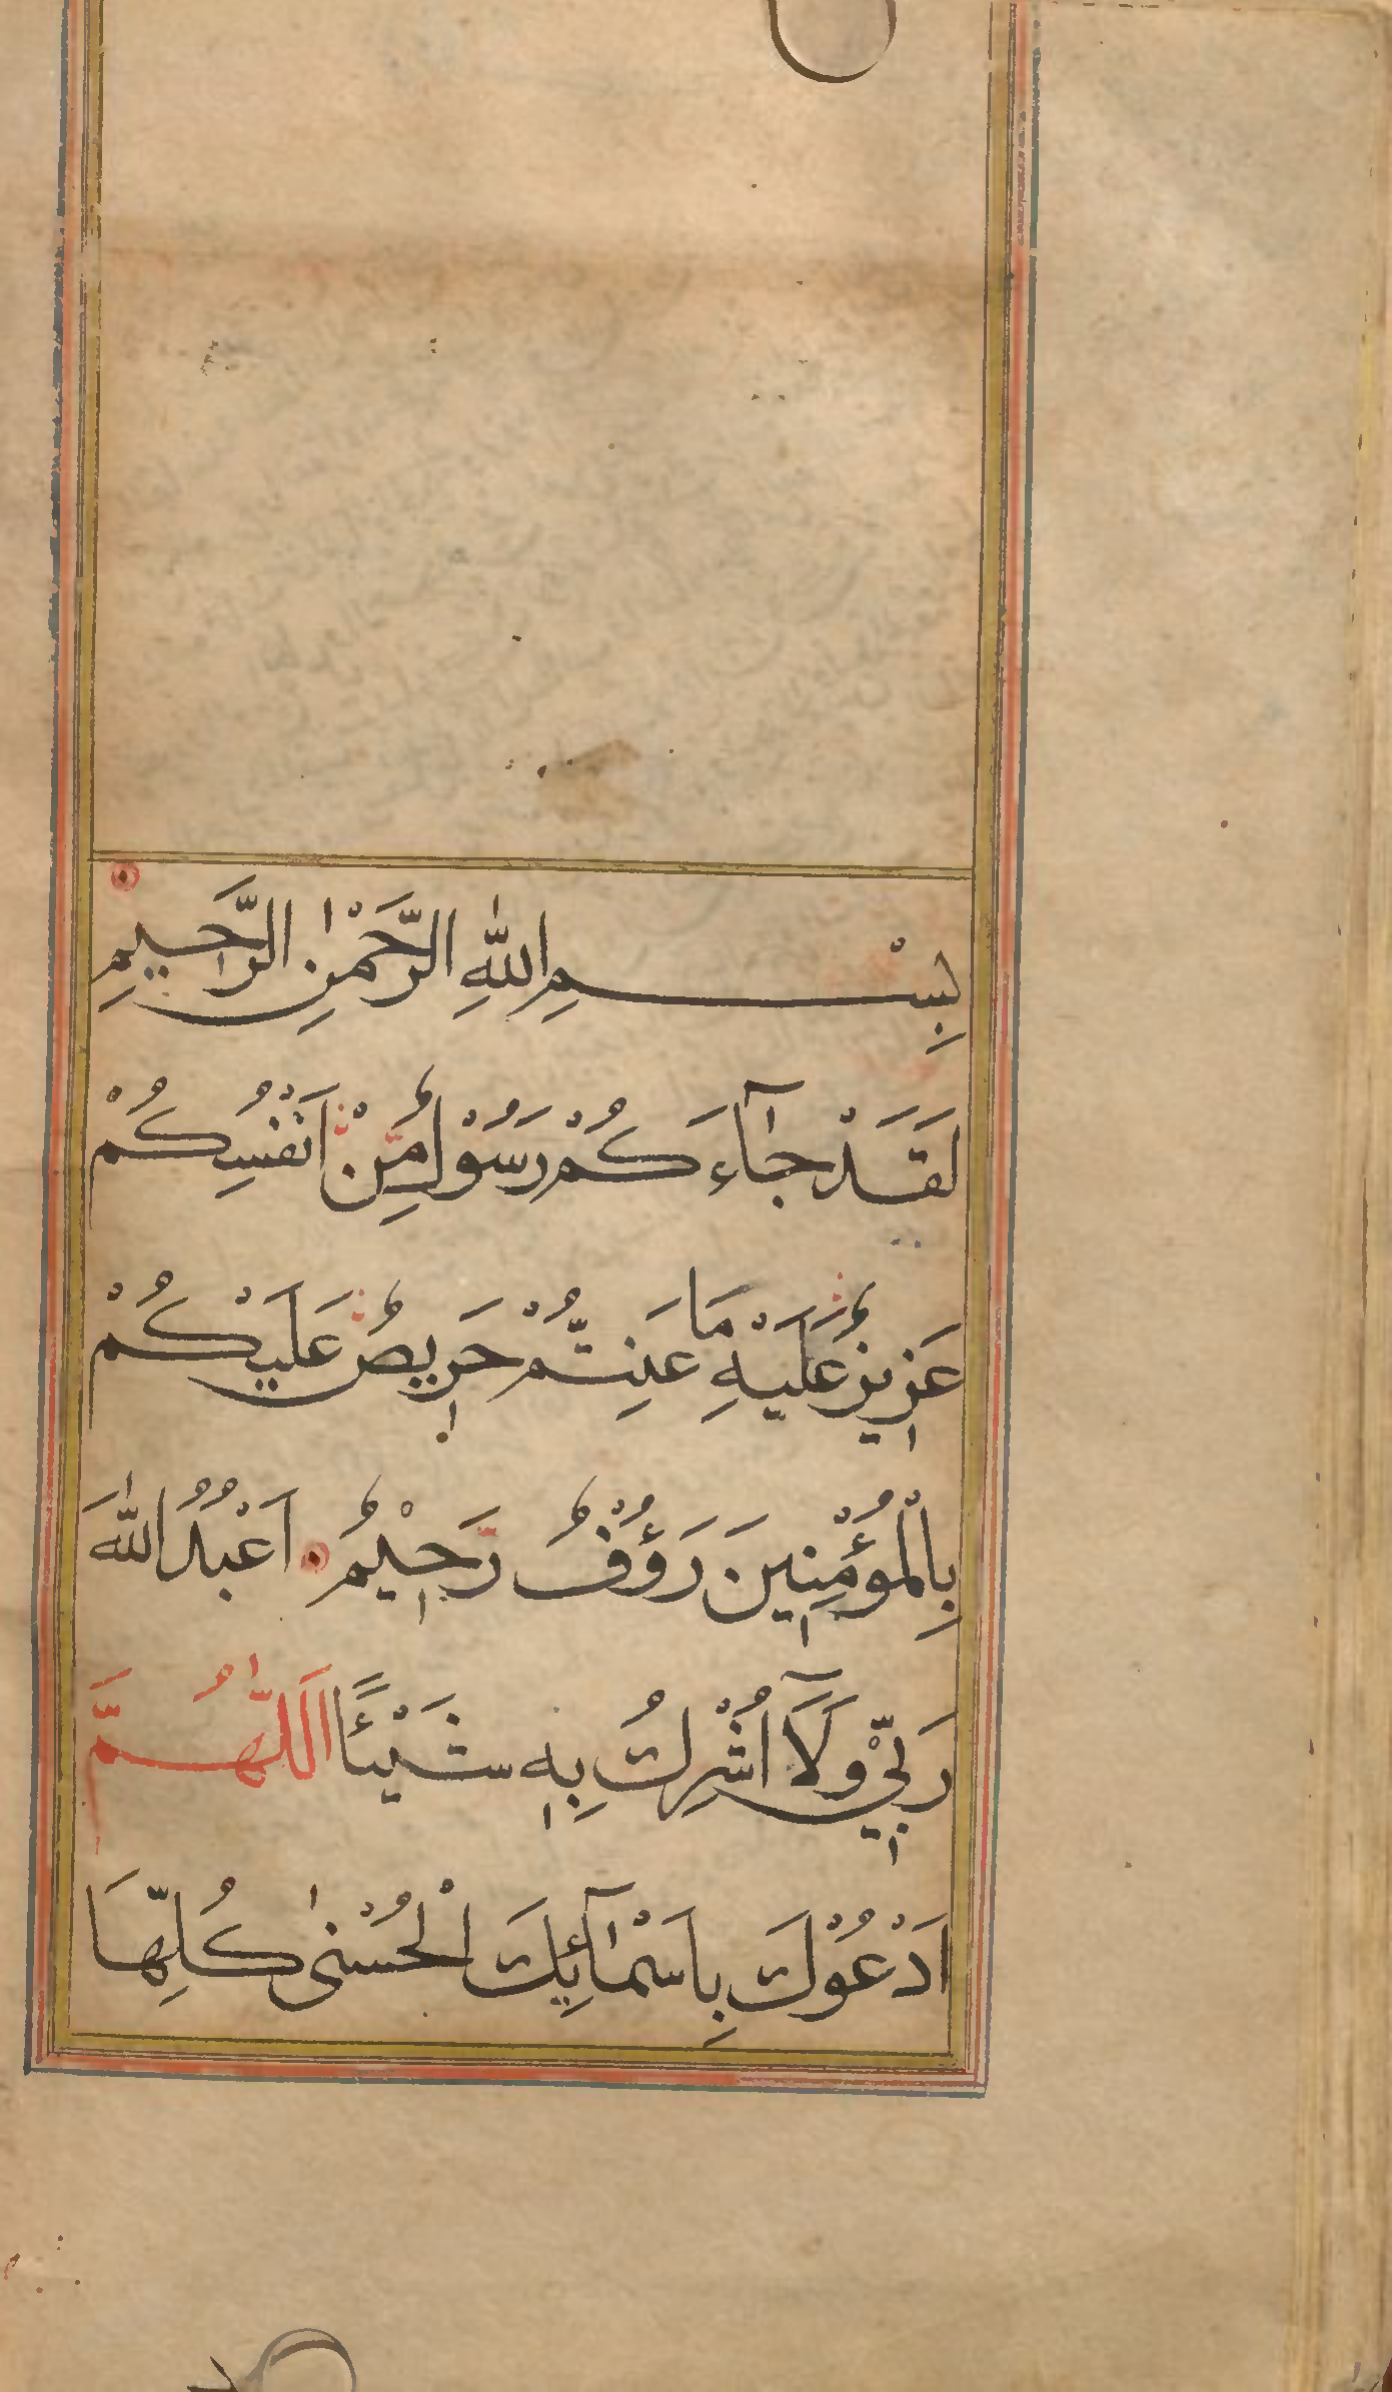 بِسْمِ اللّٰهِ الرَّحْمٰنِ الرَّحِيمِ
لَقَدْ جَآءَ كُمْ رَسُوْلٌ مِّنْ اَنْفُسِكُمْ
عَزِيزٌ عَلَيْهِ مَا عَنِتُّمْ حَرِيصٌ عَلَيْكُمْ
بِالْمُؤْمِنِينَ رَؤُفٌ رَّحِيْمٌ اَعْبُدُ اللّٰهَ
رَبِّيْ وَلَآ اُشْرِكُ بِهٖ شَيْئًا اَللّٰهُمَّ
اَدْعُوْكَ بِاَسْمَآئِكَ الْحُسْنٰى كُلِّهَا